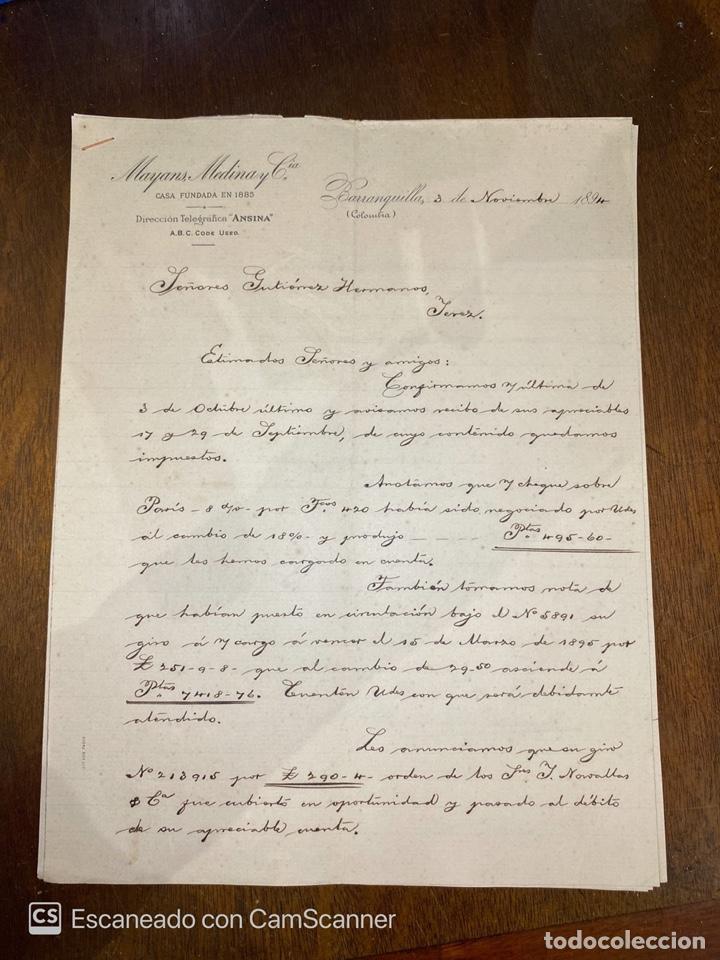 Mayans, Medina y Cia
CASA FUNDADA EN 1885
Dirección Telegráfica "ANSINA"
A.B.C. CODE USED.
Barranquilla, 3 de Noviembre 1894
(Colombia)
Señores Gutiérrez Hermanos,
Jerez.
Etimados Señores y amigos:
Confirmamos n/ última de
3 de Octubre último y avisamos recibo de sus apreciables
17 y 29 de Septiembre, de cuyo contenido quedamos
impuestos.
Anotámos que n/ cheque sobre
París - 8 d/v - por Fcos 420 había sido negociado por Udes
al cambio de 18% - y produjo Ptas 495-60-
que les hemos cargado en cuenta.
También tomamos nota de
que habían puesto en circulación bajo el Nº 5891 su
giro á n/ cargo á vencer el 15 de Marzo de 1895 por
£ 251-9-8- que al cambio de 29.50 asciende á
Ptas 7418-76. Cuenten Udes con que será debidamte
atendido.
Les anunciamos que su giro
Nº 213915 por £ 290-4- orden de los
& Ca fue cubierto en oportunidad y pasado al débito
de su apreciable cuenta.
CS Escaneado con CamScanner
todocoleccion